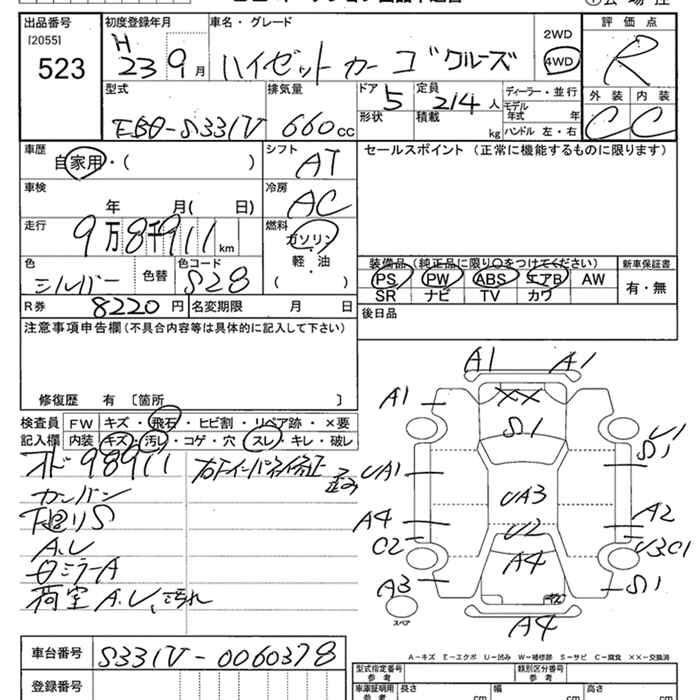 出品番号 初度登録年月 車名・グレード 2WD 評価点
[2055] H 23 9月 ハイゼットカーゴ クルーズ 4WD R
523
型式 排気量 ドア 定員 ディーラー・並行 外装 内装
EBD-S331V 660cc 5 2/4人 モデル年式 年 C C
形状 積載 kg ハンドル 左・右
車歴 自家用・( ) シフト AT セールスポイント (正常に機能するものに限ります)
車検 年 月( 日) 冷房 AC
走行 9万8千911km 燃料 ガソリン・軽・油 ( )
色 シルバー 色替 色コード S28
装備品 (純正品に限り○をつけてください) 新車保証書
PS PW ABS エアB AW 有・無
SR ナビ TV カワ
R券 8220円 名変期限 月 日 後日品
注意事項申告欄 (不具合内容等は具体的に記入して下さい)
修復歴 有 〔箇所 〕
検査員 FW キズ・飛石・ヒビ割・リペア跡・×要
記入欄 内装 キズ・汚レ・コゲ・穴・スレ・キレ・破レ
オド 98911
カンバン
下廻りS
A.U
ミラーA
荷室 A.U、汚れ
A1 A1
A1 XX
S1 U1 S1
UA1 UA3
A4 U2 A2
C2 A4 U3C1
A3 S1
スペア A4
A-キズ E-エクボ U-凹み W-補修跡 S-サビ C-腐食 ××-交換済
車台番号 S331V-0060378
登録番号
型式指定番号 参考 類別区分番号 参考
車庫証明用 参考 長さ cm 幅 cm 高さ cm